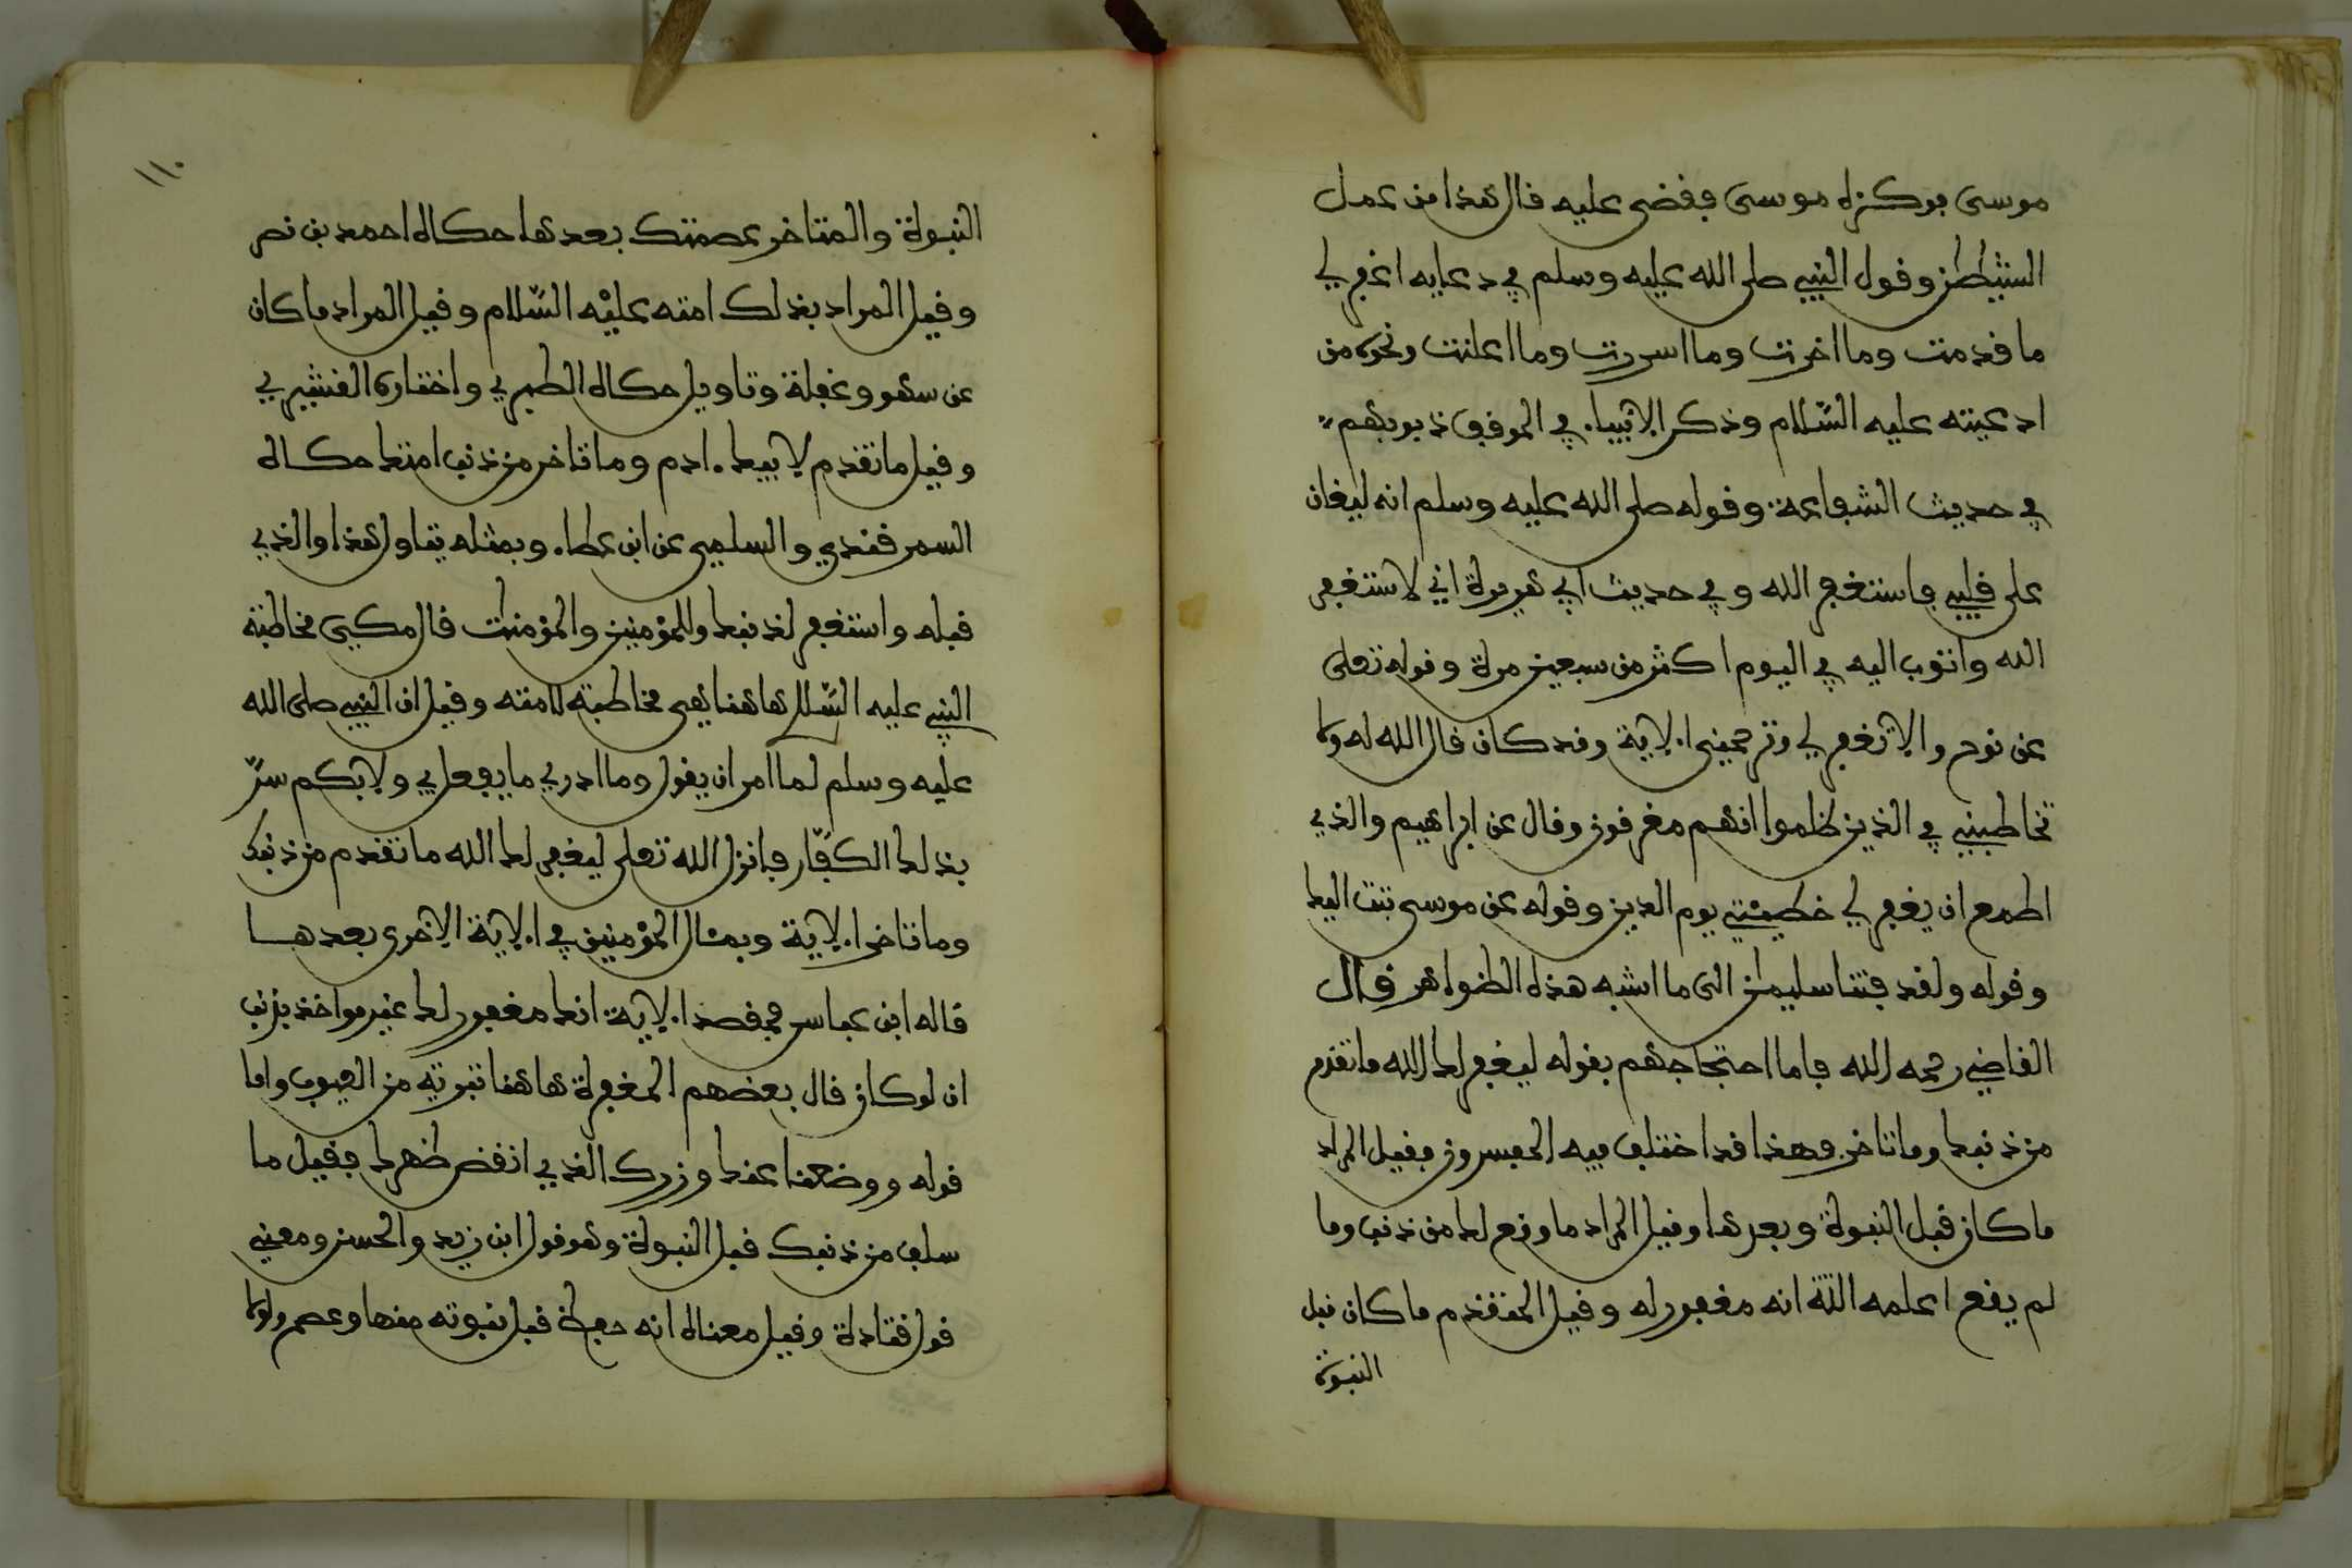 موسى فوكزه موسى فقضى عليه قال هذا من عمل
الشيطن وقول النبي صلى الله عليه وسلم في دعايه اغفر لي
ما قدمت وما اخرت وما اسررت وما اعلنت ونحوه من
ادعيته عليه السّلام وذكر الانبياء في الموقف ذنوبهم
في حديث الشفاعة وقوله صلى الله عليه وسلم انه ليغان
على قلبي فاستغفر الله وفي حديث ابي هريرة اني لاستغفر
الله واتوب اليه في اليوم اكثر من سبعين مرة وقوله تعلى
عن نوح والا تغفر لي وترحمني الاية وقد كان قال الله له ولا
تخاطبني في الذين ظلموا انهم مغرقون وقال عن ابراهيم والذي
اطمع ان يغفر لي خطيئتي يوم الدين وقوله عن موسى تبت اليك
وقوله ولقد فتنا سليمن الى ما اشبه هذه الظواهر قال
القاضي رحمه الله فاما احتجاجهم بقوله ليغفر لك الله ما تقدم
من ذنبك وما تاخر فهذا قد اختلف فيه المفسرون فقيل المراد
ما كان قبل النبوة وبعدها وقيل المراد ما وقع لك من ذنب وما
لم يقع اعلمه الله انه مغفور له وقيل المتقدم ما كان قبل
النبوة
١١٠
النبوة والمتاخر عصمتك بعدها حكاه احمد بن نصر
وقيل المراد بذلك امته عليْه السّلام وقيل المراد ما كان
عن سهو وغفلة وتاويل حكاه الطبري واختاره القشيري
وقيل ما تقدم لابيك ادم وما تاخر من ذنب امتك حكاه
السمرقندي والسلمي عن ابن عطاء وبمثله يتاول هذا والذي
قبله واستغفر لذنبك وللمؤمنين والمؤمنت قال مكي مخاطبة
النبي عليه السّلم هاهنا هي مخاطبة لامته وقيل ان النبي صلى الله
عليه وسلم لما امر ان يقول وما ادري ما يفعل بي ولا بكم سرّ
بذلك الكفّار فانزل الله تعلى ليغفر لك الله ما تقدم من ذنبك
وما تاخر الاية وبمئال المؤمنين في الاية الاخرى بعدها
قاله ابن عباس فمقصد الاية انك مغفور لك غير مواخذ بذنب
ان لو كان قال بعضهم المغفرة هاهنا تبرئة من العيوب واما
قوله ووضعنا عنك وزرك الذي انقض ظهرك فقيل ما
سلف من ذنبك قبل النبوة وهو قول ابن زيد والحسن ومعنى
قول قتادة وقيل معناه انه حفظ قبل نبوته منها وعصم ولولا